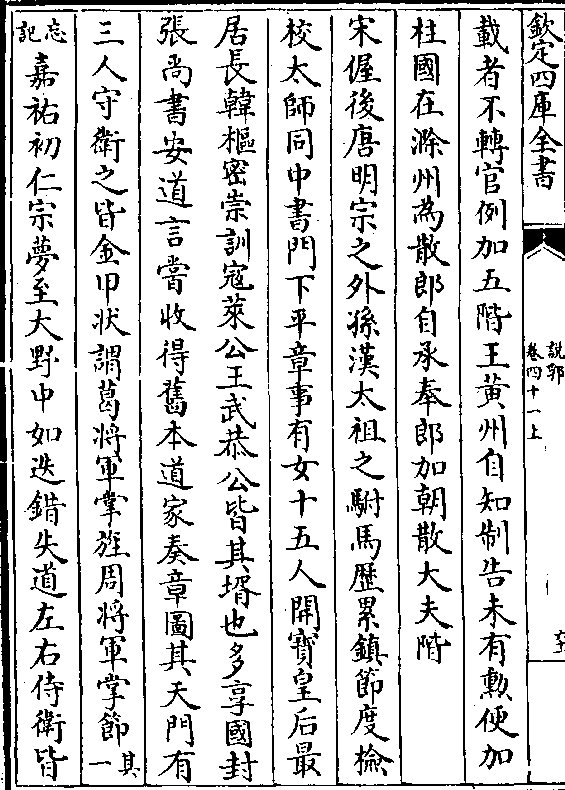 欽定四庫全書
說郛
卷四十一上
載者不轉官例加五階王黃州自知制告未有勲便加
柱國在滁州為散郎自承奉郎加朝散大夫階
宋偓後唐明宗之外孫漢太祖之駙馬歴累鎮節度檢
校太師同中書門下平章事有女十五人開寶皇后最
居長韓樞密崇訓寇萊公王武恭公皆其壻也多享國封
張尚書安道言嘗收得舊本道家奏章圖其天門有
三人守衛之皆金甲狀謂葛將軍掌旌周將軍掌節其一
忘記嘉祐初仁宗夢至大野中如迭錯失道左右侍衛皆